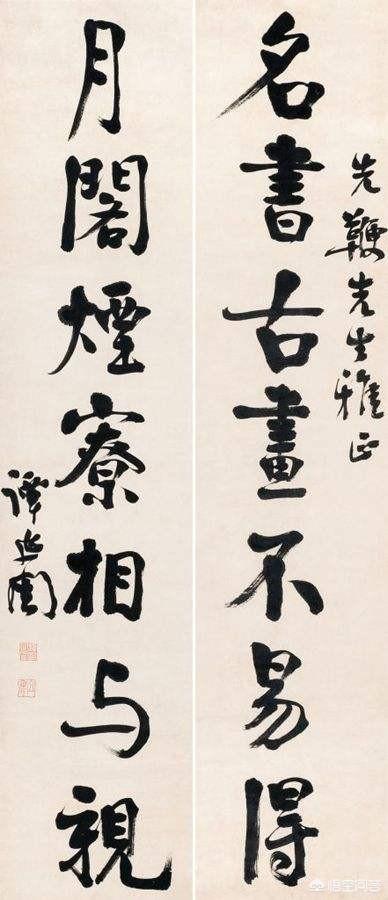 先鞭先生雅正
名書古畫不易得
月閣煙寮相与親
譚延闓
悟空问答